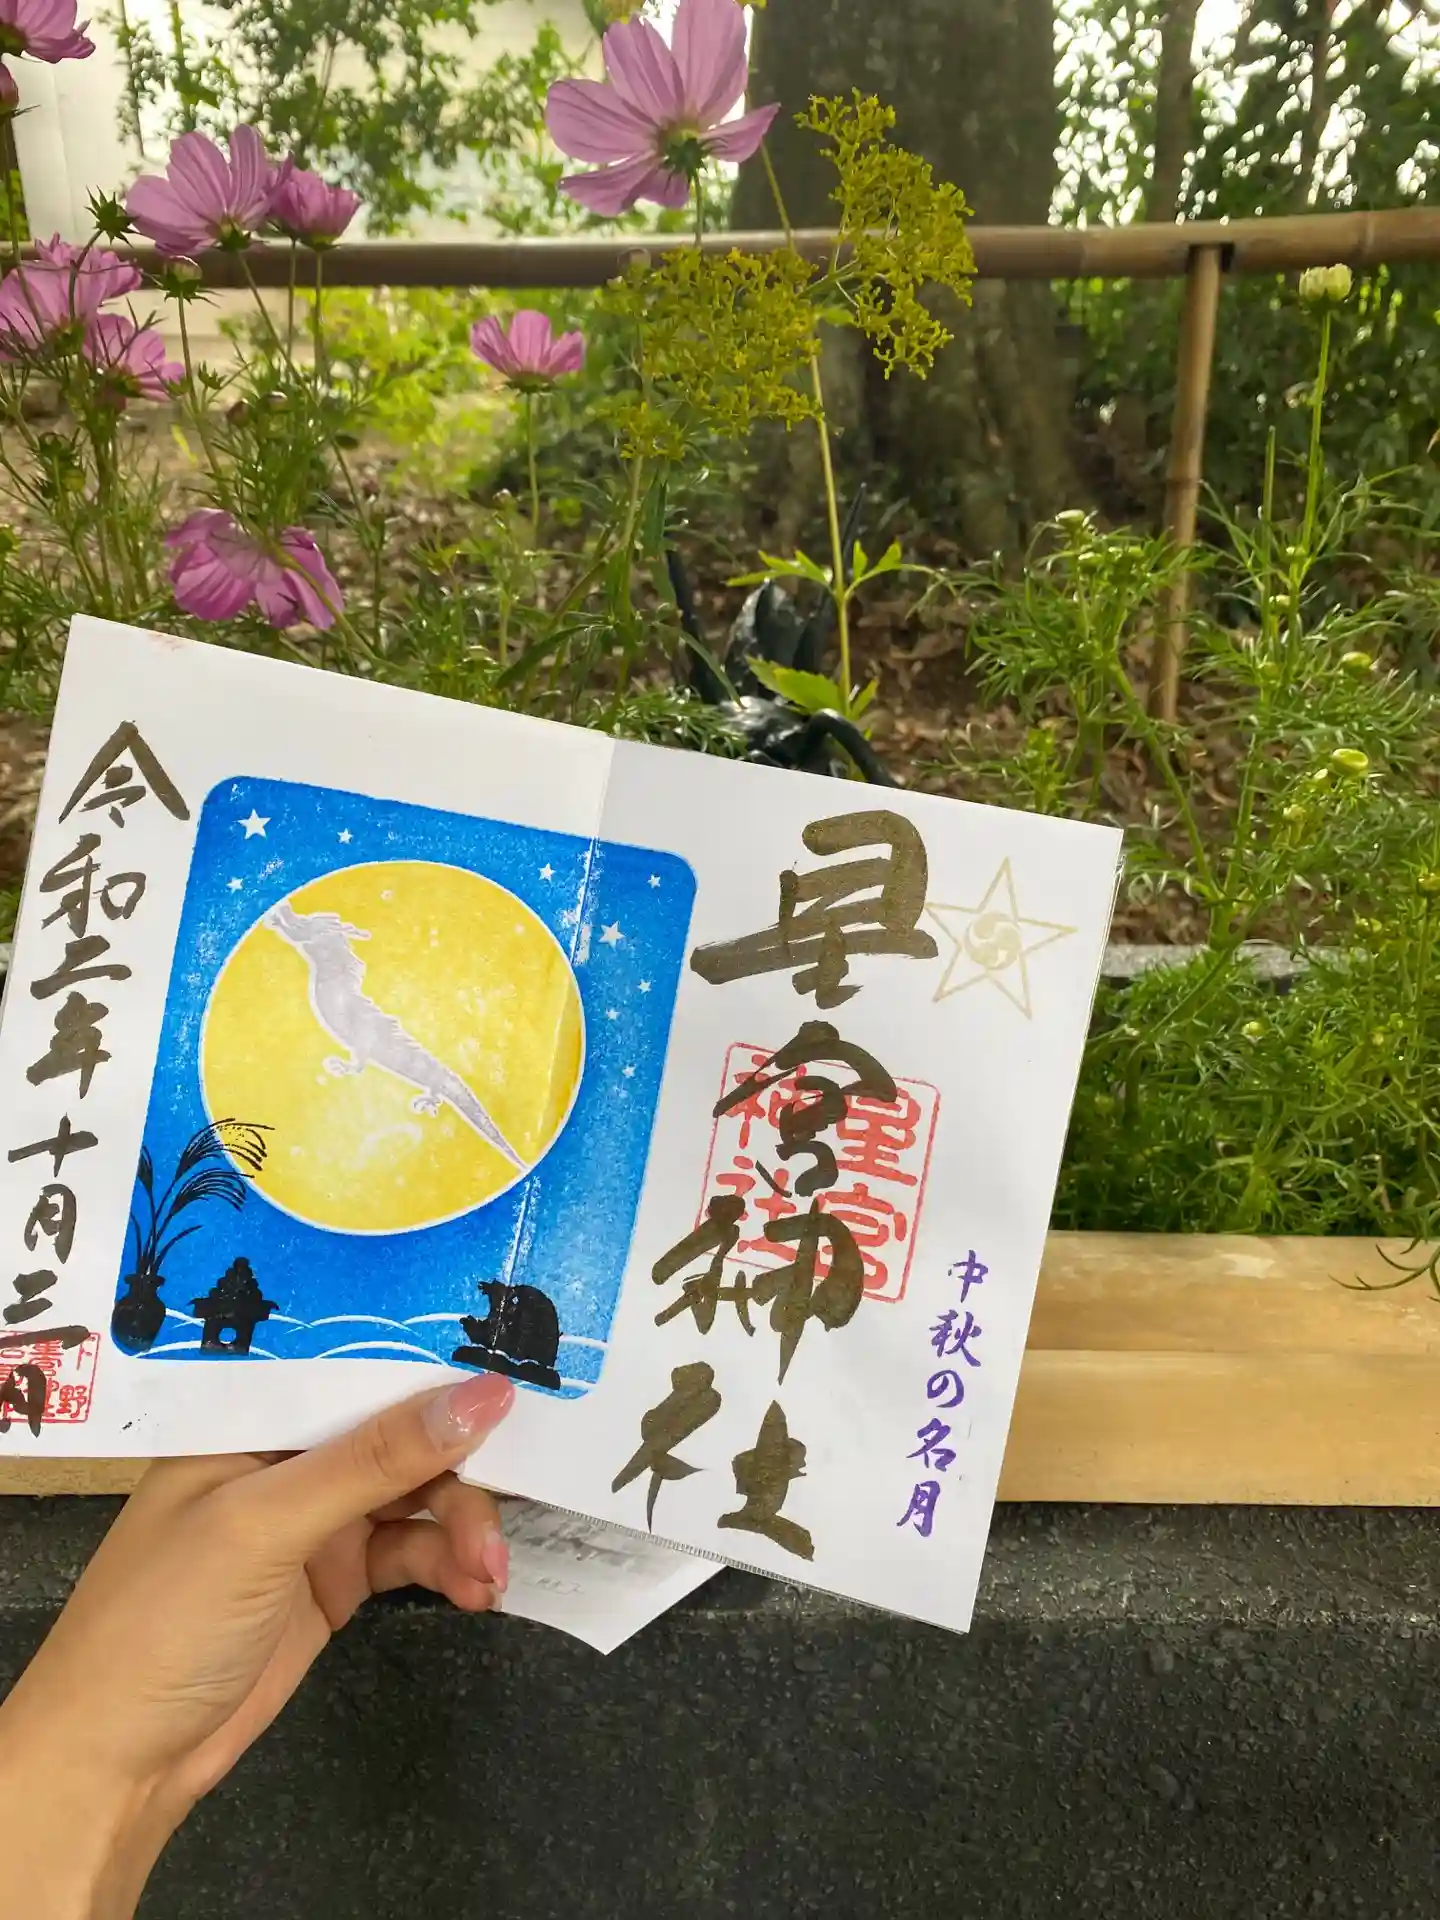 星宮神社
星宮
神社
中秋の名月
令和二年十月三日
下野